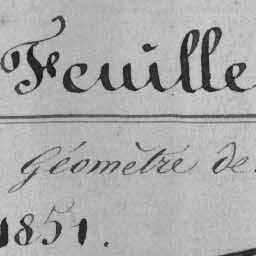 Feuille
Géomètre de
1851.